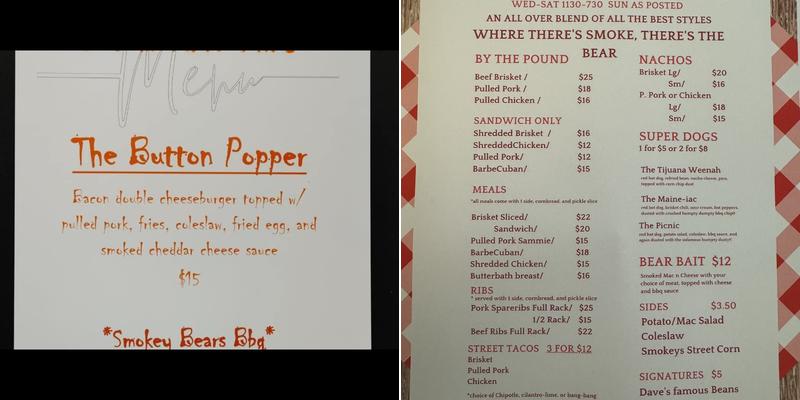 Menu
The Button Popper
Bacon double cheeseburger topped w/
pulled pork, fries, coleslaw, fried egg, and
smoked cheddar cheese sauce
$15
*Smokey Bears Bbq*
WED-SAT 1130-730 SUN AS POSTED
AN ALL OVER BLEND OF ALL THE BEST STYLES
WHERE THERE'S SMOKE, THERE'S THE
BEAR
BY THE POUND
Beef Brisket / $25
Pulled Pork / $18
Pulled Chicken / $16
SANDWICH ONLY
Shredded Brisket / $16
ShreddedChicken/ $12
Pulled Pork/ $12
BarbeCuban/ $15
MEALS
*all meals come with 1 side, cornbread, and pickle slice
Brisket Sliced/ $22
Sandwich/ $20
Pulled Pork Sammie/ $15
BarbeCuban/ $18
Shredded Chicken/ $15
Butterbath breast/ $16
RIBS
* served with 1 side, cornbread, and pickle slice
Pork Spareribs Full Rack/ $25
1/2 Rack/ $15
Beef Ribs Full Rack/ $22
STREET TACOS 3 FOR $12
Brisket
Pulled Pork
Chicken
*choice of Chipotle, cilantro-lime, or bang-bang
NACHOS
Brisket Lg/ $20
Sm/ $16
P. Pork or Chicken
Lg/ $18
Sm/ $15
SUPER DOGS
1 for $5 or 2 for $8
The Tijuana Weenah
red hot dog, refried bean, nacho cheese, pico,
topped with corn chip dust
The Maine-iac
red hot dog, brisket chili, sour cream, hot peppers,
dusted with crushed humpty dumpty bbq chips!
The Picnic
red hot dog, potato salad, coleslaw, bbq sauce, and
again dusted with the infamous humpty dusty!!
BEAR BAIT $12
Smoked Mac n Cheese with your
choice of meat, topped with cheese
and bbq sauce
SIDES $3.50
Potato/Mac Salad
Coleslaw
Smokeys Street Corn
SIGNATURES $5
Dave's famous Beans